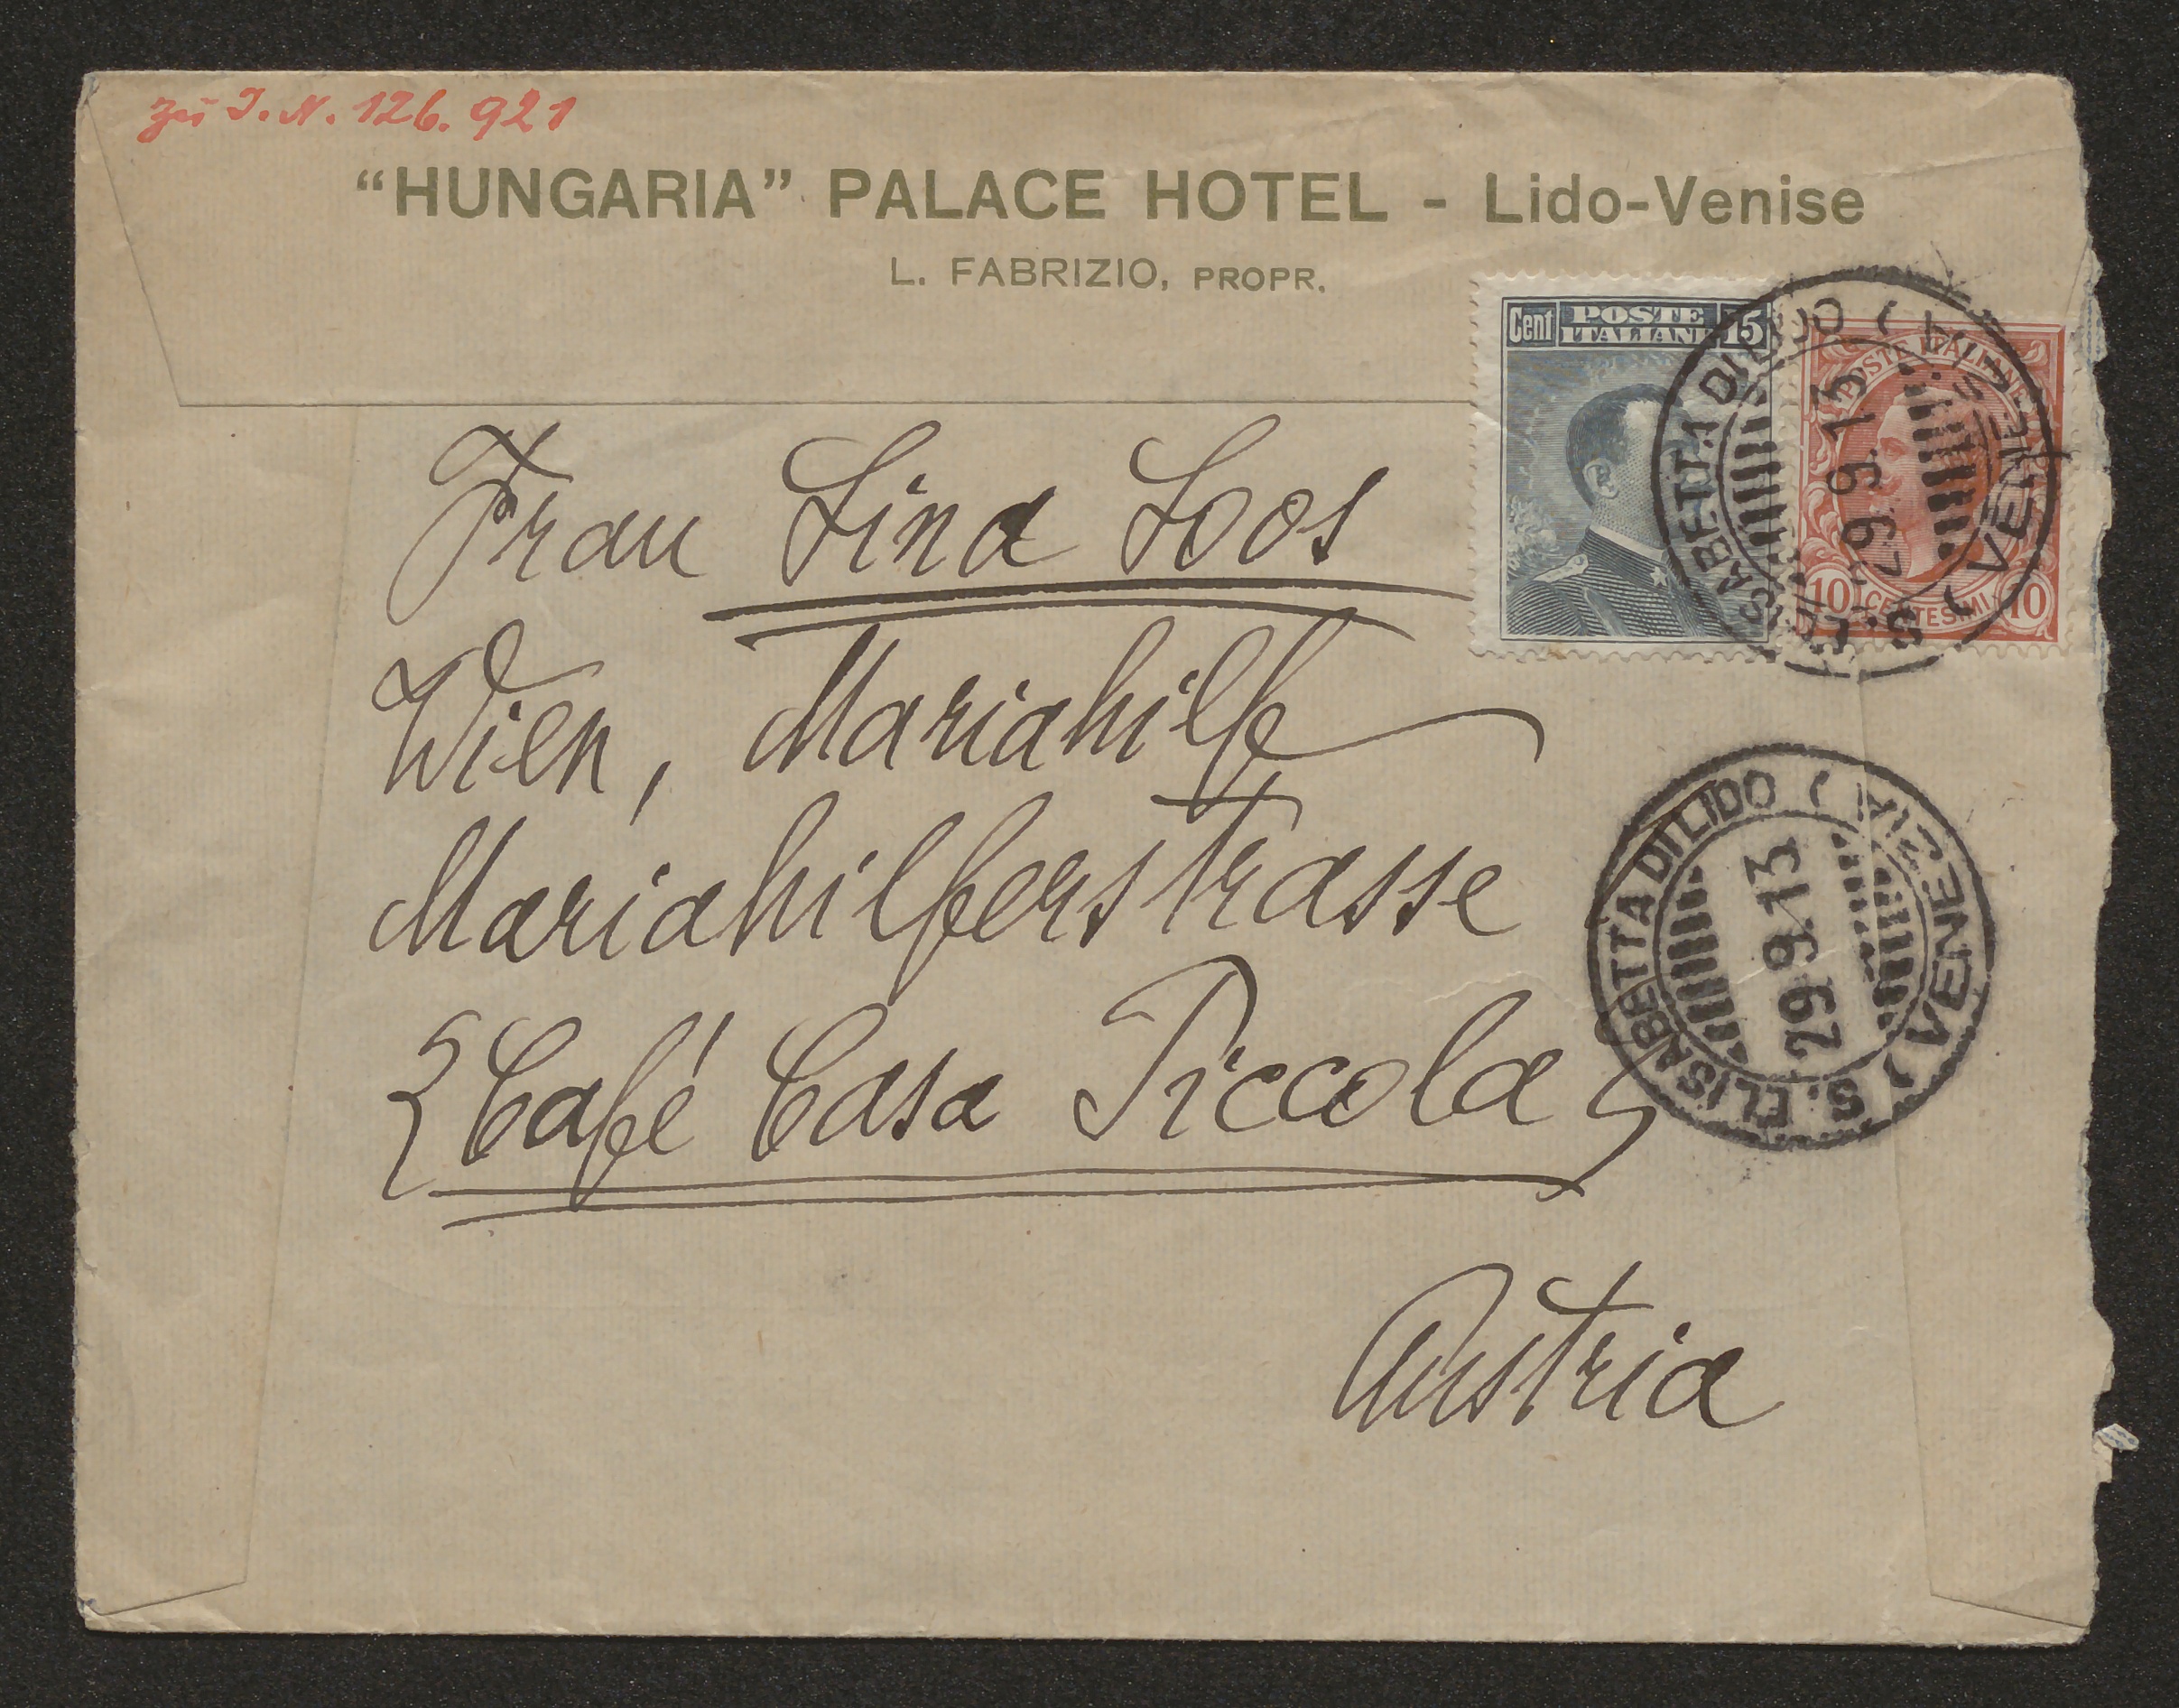 zu I. N. 126.921
“HUNGARIA” PALACE HOTEL - Lido-Venise
L. FABRIZIO, PROPR.
Cent POSTE ITALIANE 15
POSTE ITALIANE
10 CENTESIMI 10
S. ELISABETTA DI LIDO (VENEZIA) (VENEZIA)
29.9.13
Frau Lina Loos
Wien, Mariahilf
Mariahilferstrasse
Café Casa Piccola
S. ELISABETTA DI LIDO (VENEZIA)
29.9.13
Austria